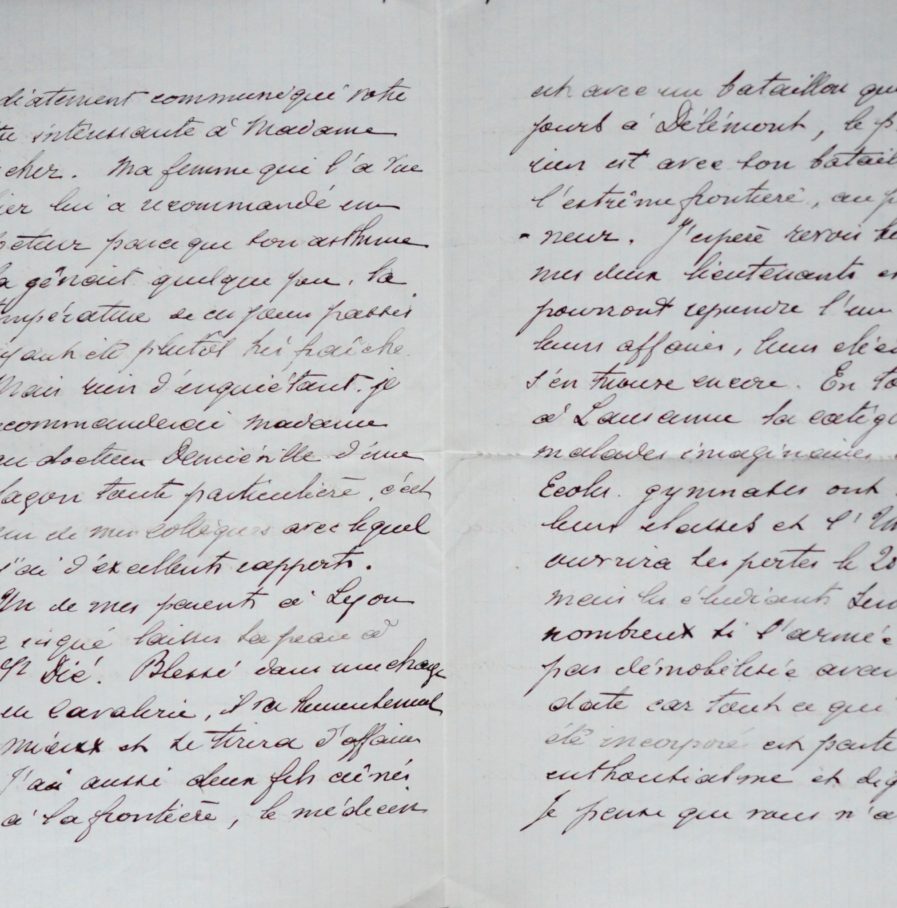 diatement communiqué votre
intéressante à Madame
cher. Ma femme qui l'a vue
ier lui a recommandé un
parce que son asthme
la gênait quelque peu, la
mpérature de ces jours passés
yant été plutôt très fraîche.
Mais rien d'inquiétant. je
ecommanderai Madame
au docteur Demiéville d'une
façon toute particulière, c'est
un de mes collègues avec lequel
j'ai d'excellents rapports.
Un de mes parents à Lyon
a risqué laisser sa peau à
St Dié. Blessé dans une charge
en cavalerie, il va heureusement
mieux et se tirera d'affaire
J'ai aussi deux fils aînés
à la frontière, le médecin
est avec un bataillon qu
jours à Délémont, le p
rien est avec son batail
l'extrême frontière, au p
-neur. J'espère revoir
mes deux lieutenants e
pourront reprendre l'un
leurs affaires, leurs
s'en trouve encore. En to
à Lausanne la catég
malades imaginaires
Ecoles. gymnases ont
leurs classes et l'Un
ouvrira ses portes le 20
mais les étudiants
nombreux si l'armée
pas démobilisée avan
date car tout ce qui
été incorporé est parti
enthousiasme et dig
Je pense que vous n'a